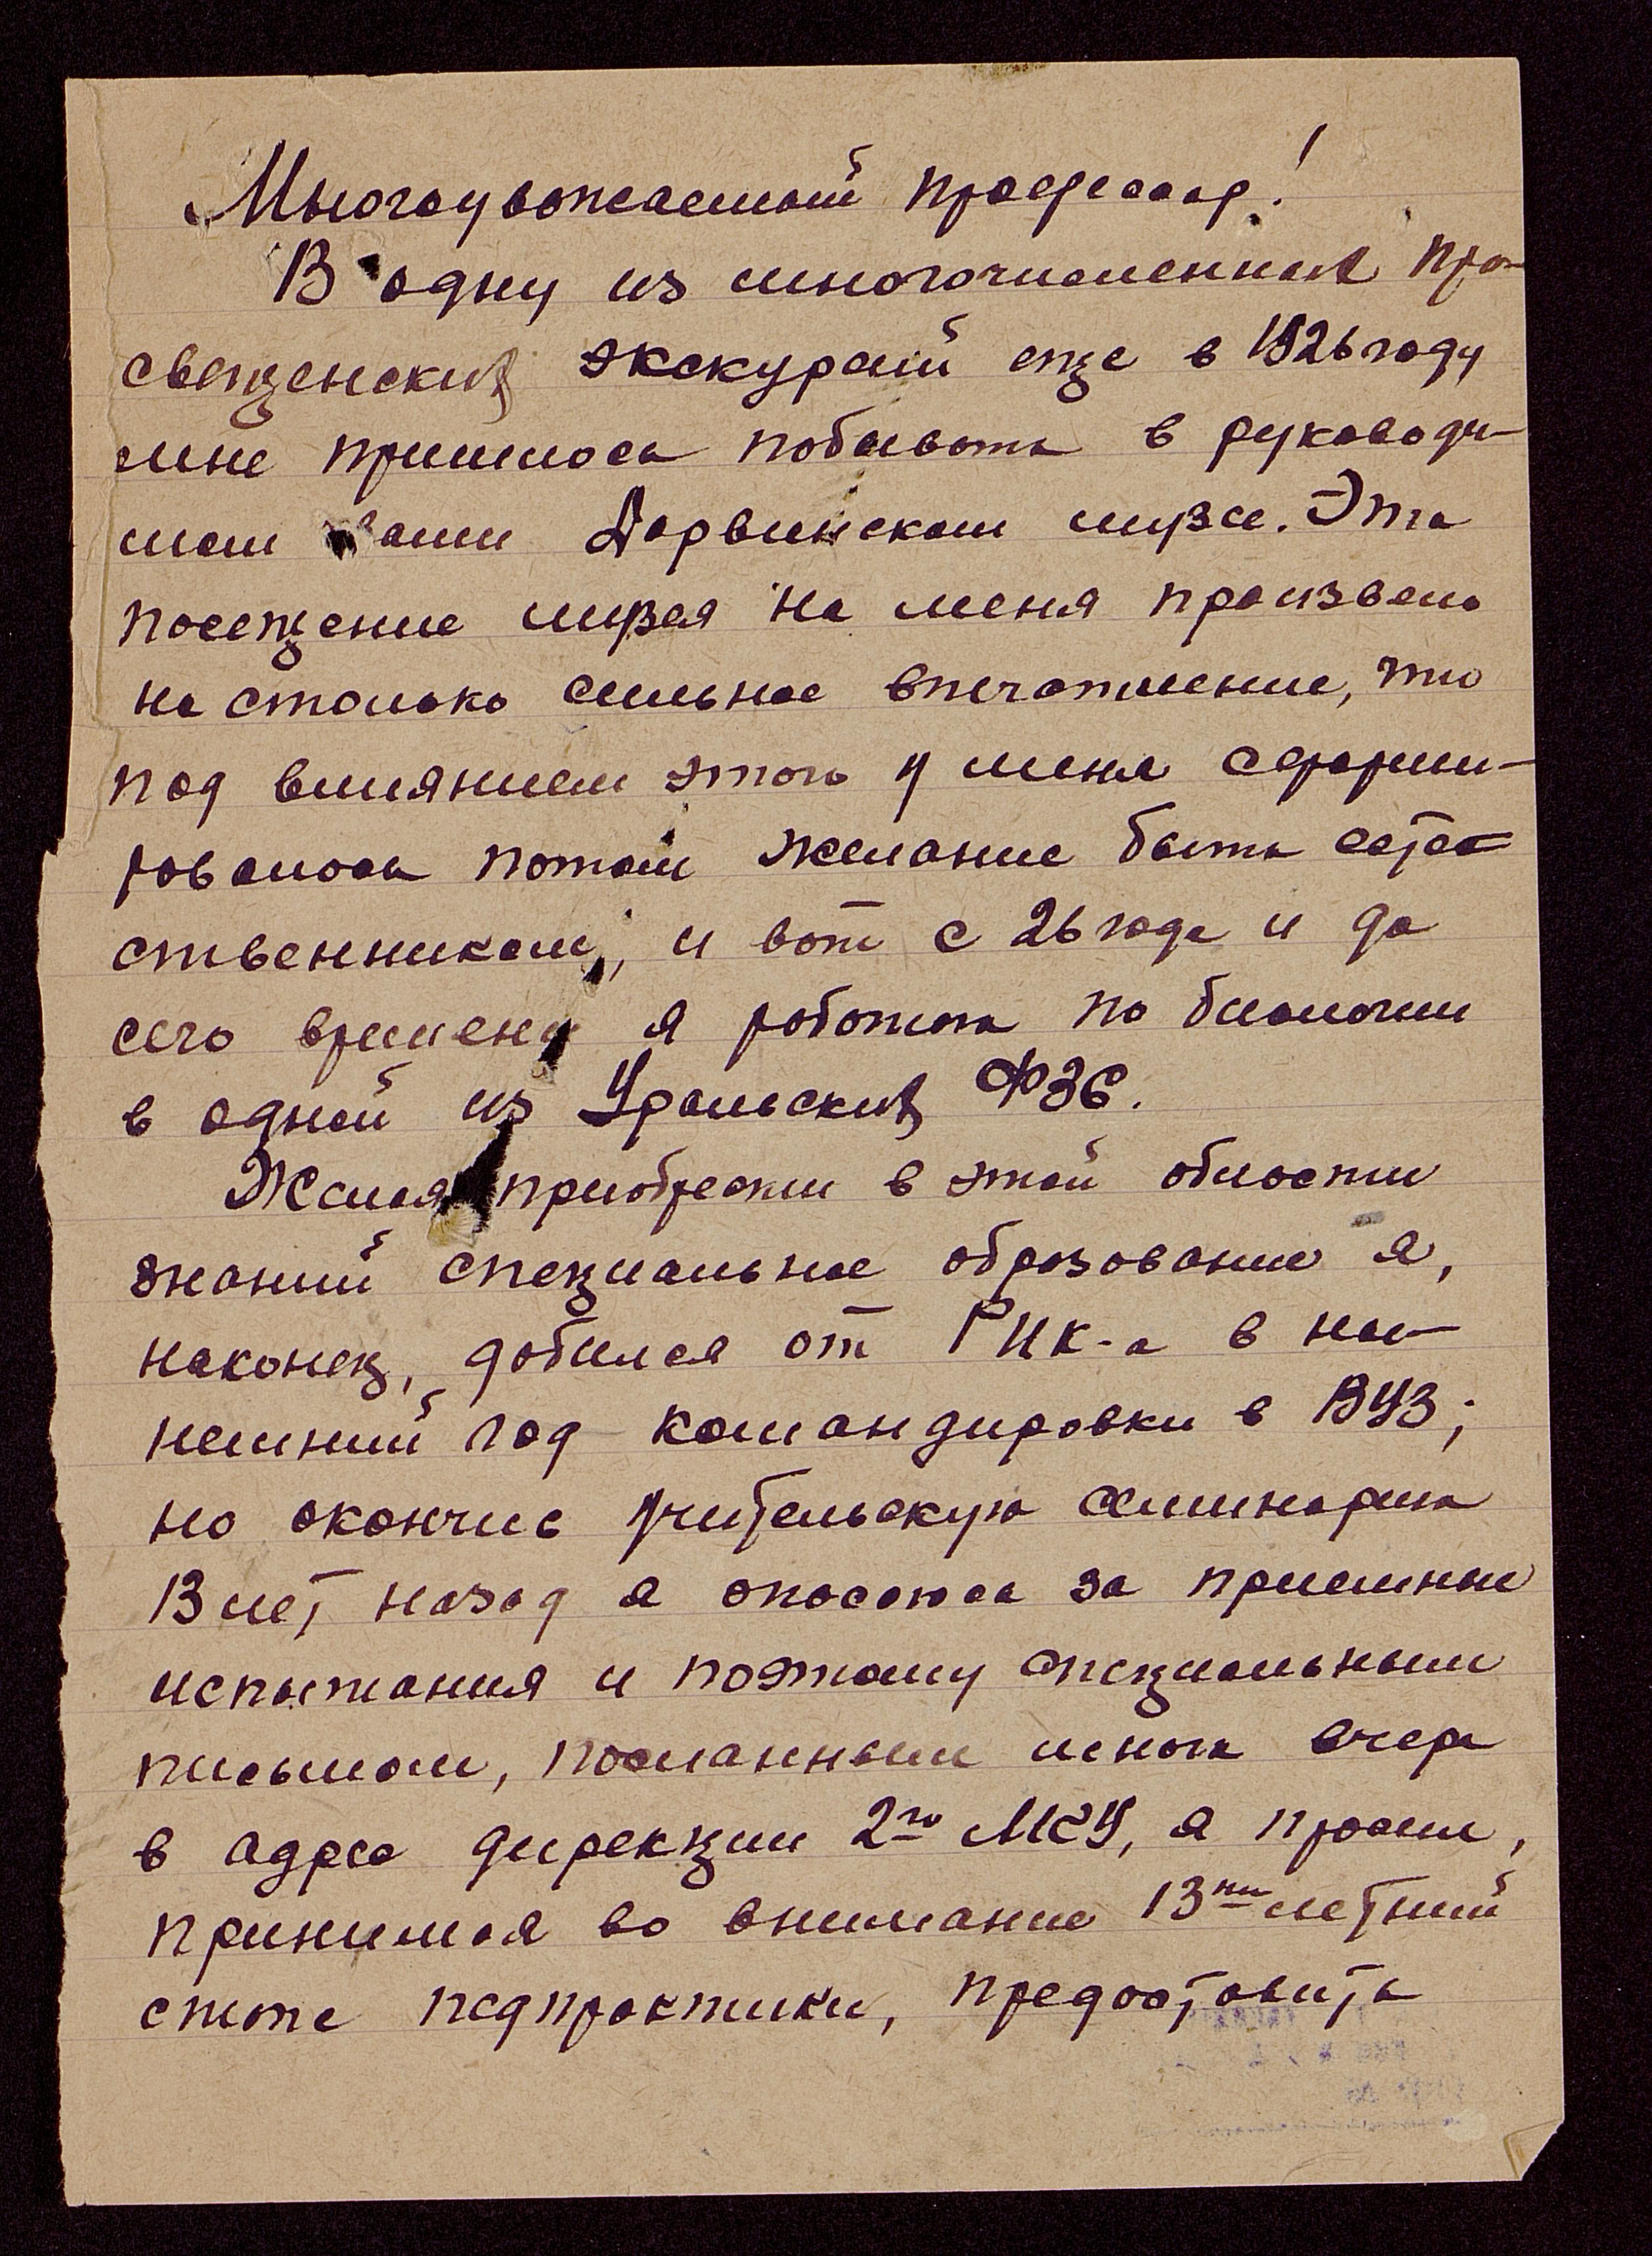 Многоуважаемый профессор!
В одну из многочисленных про-
свещенских экскурсий еще в 1926 году
мне пришлось побывать в руководи-
мом вами Дарвинском музее. Это
посещение музея на меня произвело
на столько сильное впечатление, что
под влиянием этого у меня сформи-
ровалось потом желание быть естест-
ственником, и вот с 26 года и до
сего времени я работаю по биологии
в одной из Уральских ФЗС.
Желая приобрести в этой области
знаний специальное образование я,
наконец, добился от РИК-а в ны-
нешний год командировки в ВУЗ;
но окончив учительскую семинарию
13 лет назад я опасаюсь за приемные
испытания и поэтому специальным
письмом, посланным мною вчера
в адрес дирекции 2го МГУ, я просил,
принимая во внимание 13ти летний
стаж педпрактики, предоставить